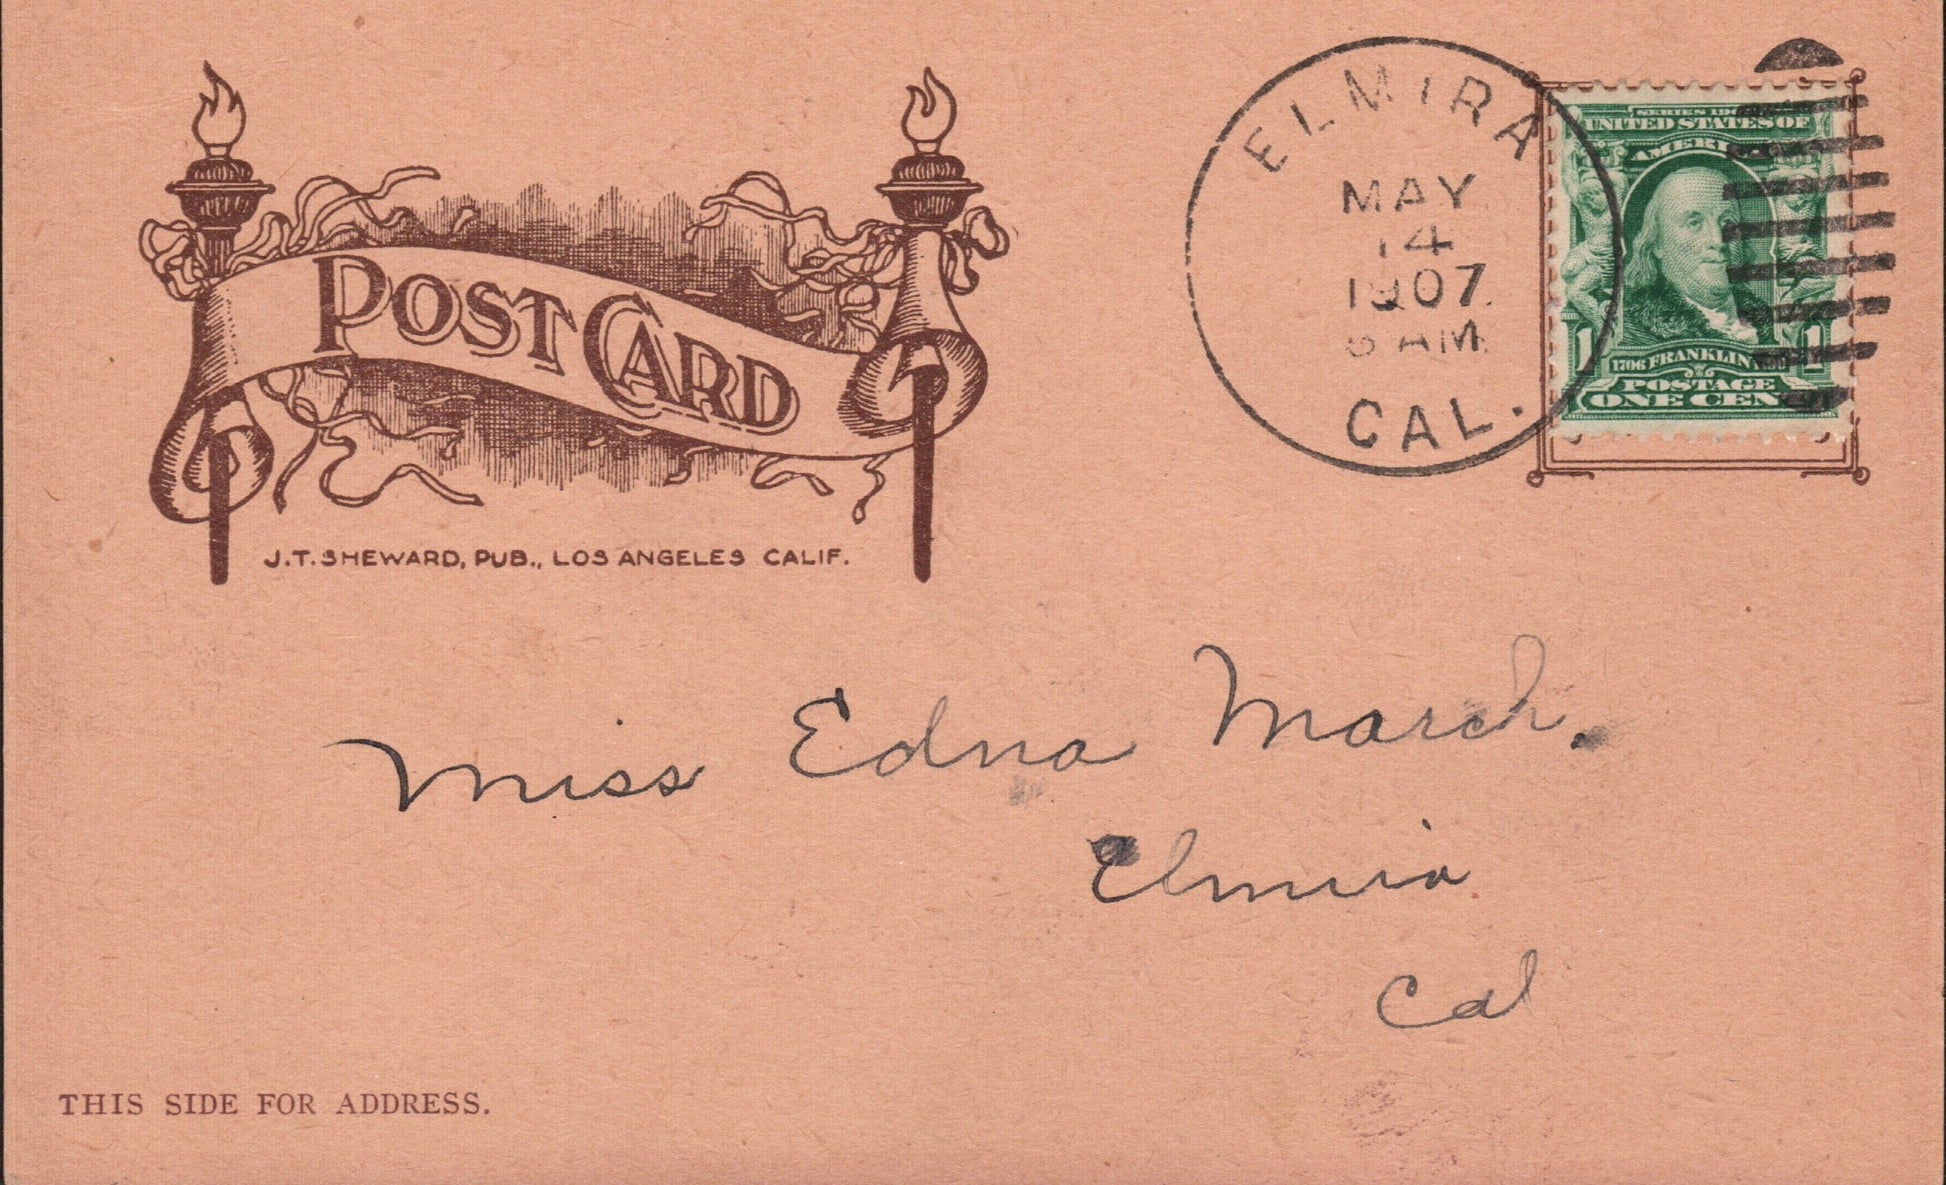 POST CARD
J.T. SHEWARD, PUB., LOS ANGELES CALIF.
ELMIRA
MAY
14
1907
AM
CAL.
SERIES
UNITED STATES OF
AMERICA
1 1706 FRANKLIN 1
POSTAGE
ONE CEN
Miss Edna March.
Elmira
Cal
THIS SIDE FOR ADDRESS.